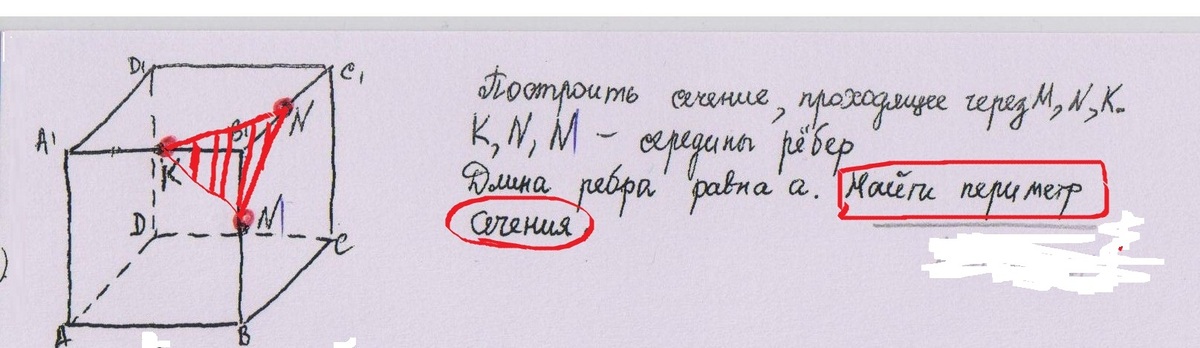 D₁
C₁
N
A'
B₁
K
M
D
C
A
B
Построить сечение, проходящее через M, N, K.
K, N, M – середины рёбер
Длина ребра равна a. Найти периметр
Сечения